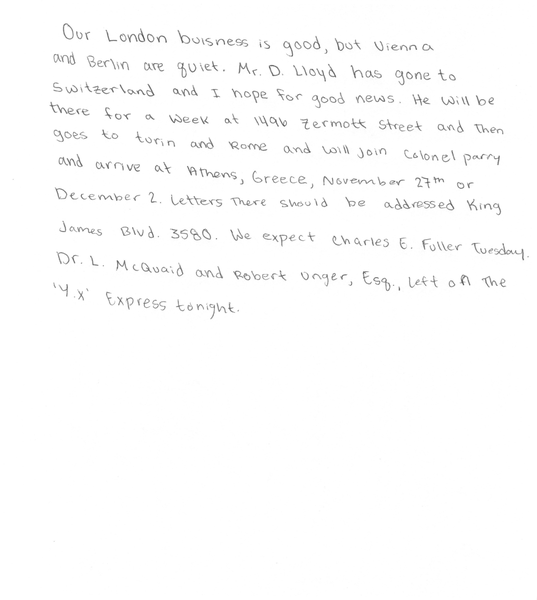 Our London buisness is good, but Vienna
and Berlin are quiet. Mr. D. Lloyd has gone to
Switzerland and I hope for good news. He will be
there for a week at 1496 Zermott Street and Then
goes to turin and Rome and will join Colonel parry
and arrive at Athens, Greece, November 27th or
December 2. Letters There should be addressed King
James Blvd. 3580. We expect Charles E. Fuller Tuesday.
Dr. L. McQuaid and Robert Unger, Esq., Left on The
'Y.X' Express tonight.